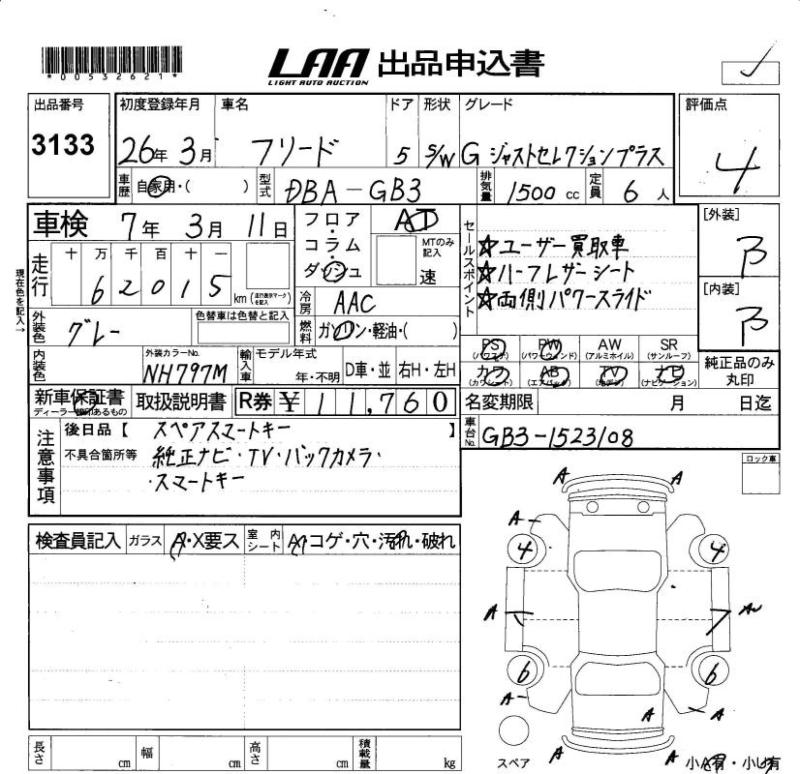 *00532621*
LAA 出品申込書
LIGHT AUTO AUCTION
出品番号 3133
初度登録年月 26年 3月
車名 フリード
ドア 5
形状 S/W
グレード G ジャストセレクションプラス
評価点 4
車歴 自家用・( )
型式 DBA-GB3
排気量 1500 cc
定員 6 人
車検 7年 3月 11日
フロア・コラム・ダッシュ
MTのみ記入
速
セールスポイント
☆ユーザー買取車
☆ハーフレザーシート
☆両側パワースライド
[外装] B
[内装] B
現在色を記入→
走行 十 万 千 百 十 一
6 2 0 1 5 km
冷房 AAC
外装色 グレー
色替車は色替と記入
燃料 ガソリン・軽油・( )
PS AW SR
(アルミホイル) (サンルーフ)
純正品のみ丸印
内装色
外装カラーNo. NH797M
輸入車 モデル年式 年・不明
D車・並 右H・左H
新車保証書 取扱説明書
R券 ¥ 11,760
名変期限 月 日迄
車台No. GB3-1523108
注意事項
後日品【 スペアスマートキー 】
不具合箇所等 純正ナビ・TV・バックカメラ・
・スマートキー
ロック車
検査員記入 ガラス A・X要ス
室内シート コゲ・穴・汚れ・破れ
A A
A
4 4
A
6 6
A A
A
A A
スペア
長さ cm 幅 cm 高さ cm 積載量 kg